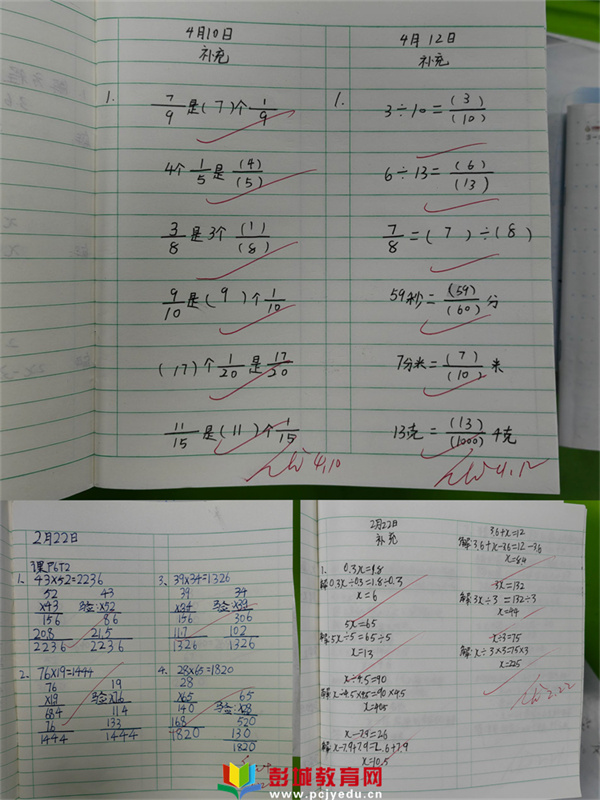 4月10日
补充
1. 7/9是(7)个1/9
4个1/5是(4)/(5)
3/8是3个(1)/(8)
9/10是(9)个1/10
(17)个1/20是17/20
11/15是(11)个1/15
4.10
4月12日
补充
1. 3÷10=(3)/(10)
6÷13=(6)/(13)
7/8=(7)÷(8)
59秒=(59)/(60)分
7分米=(7)/(10)米
13克=(13)/(1000)千克
4.12
2月22日
课P6T2
1. 43×52=2236
52 43
×43 验:×52
156 86
208 215
2236 2236
2. 76×19=1444
76 19
×19 验:×76
684 114
76 133
1444 1444
3. 39×34=1326
39 34
×34 验:×39
156 306
117 102
1326 1326
4. 28×65=1820
28
×65 65
140 验:×28
168 520
1820 130
1820
2月22日
补充
1. 0.3x=1.8
解0.3x÷0.3=1.8÷0.3
x=6
5x=65
解5x÷5=65÷5
x=13
x÷4.5=90
解x÷4.5×4.5=90×4.5
x=405
x-7.9=2.6
解x-7.9+7.9=2.6+7.9
x=10.5
3.6+x=12
解3.6+x-3.6=12-3.6
x=8.4
3x=132
解3x÷3=132÷3
x=44
x÷3=75
解x÷3×3=75×3
x=225
2.22
彭城教育网
www.pcjyedu.cn